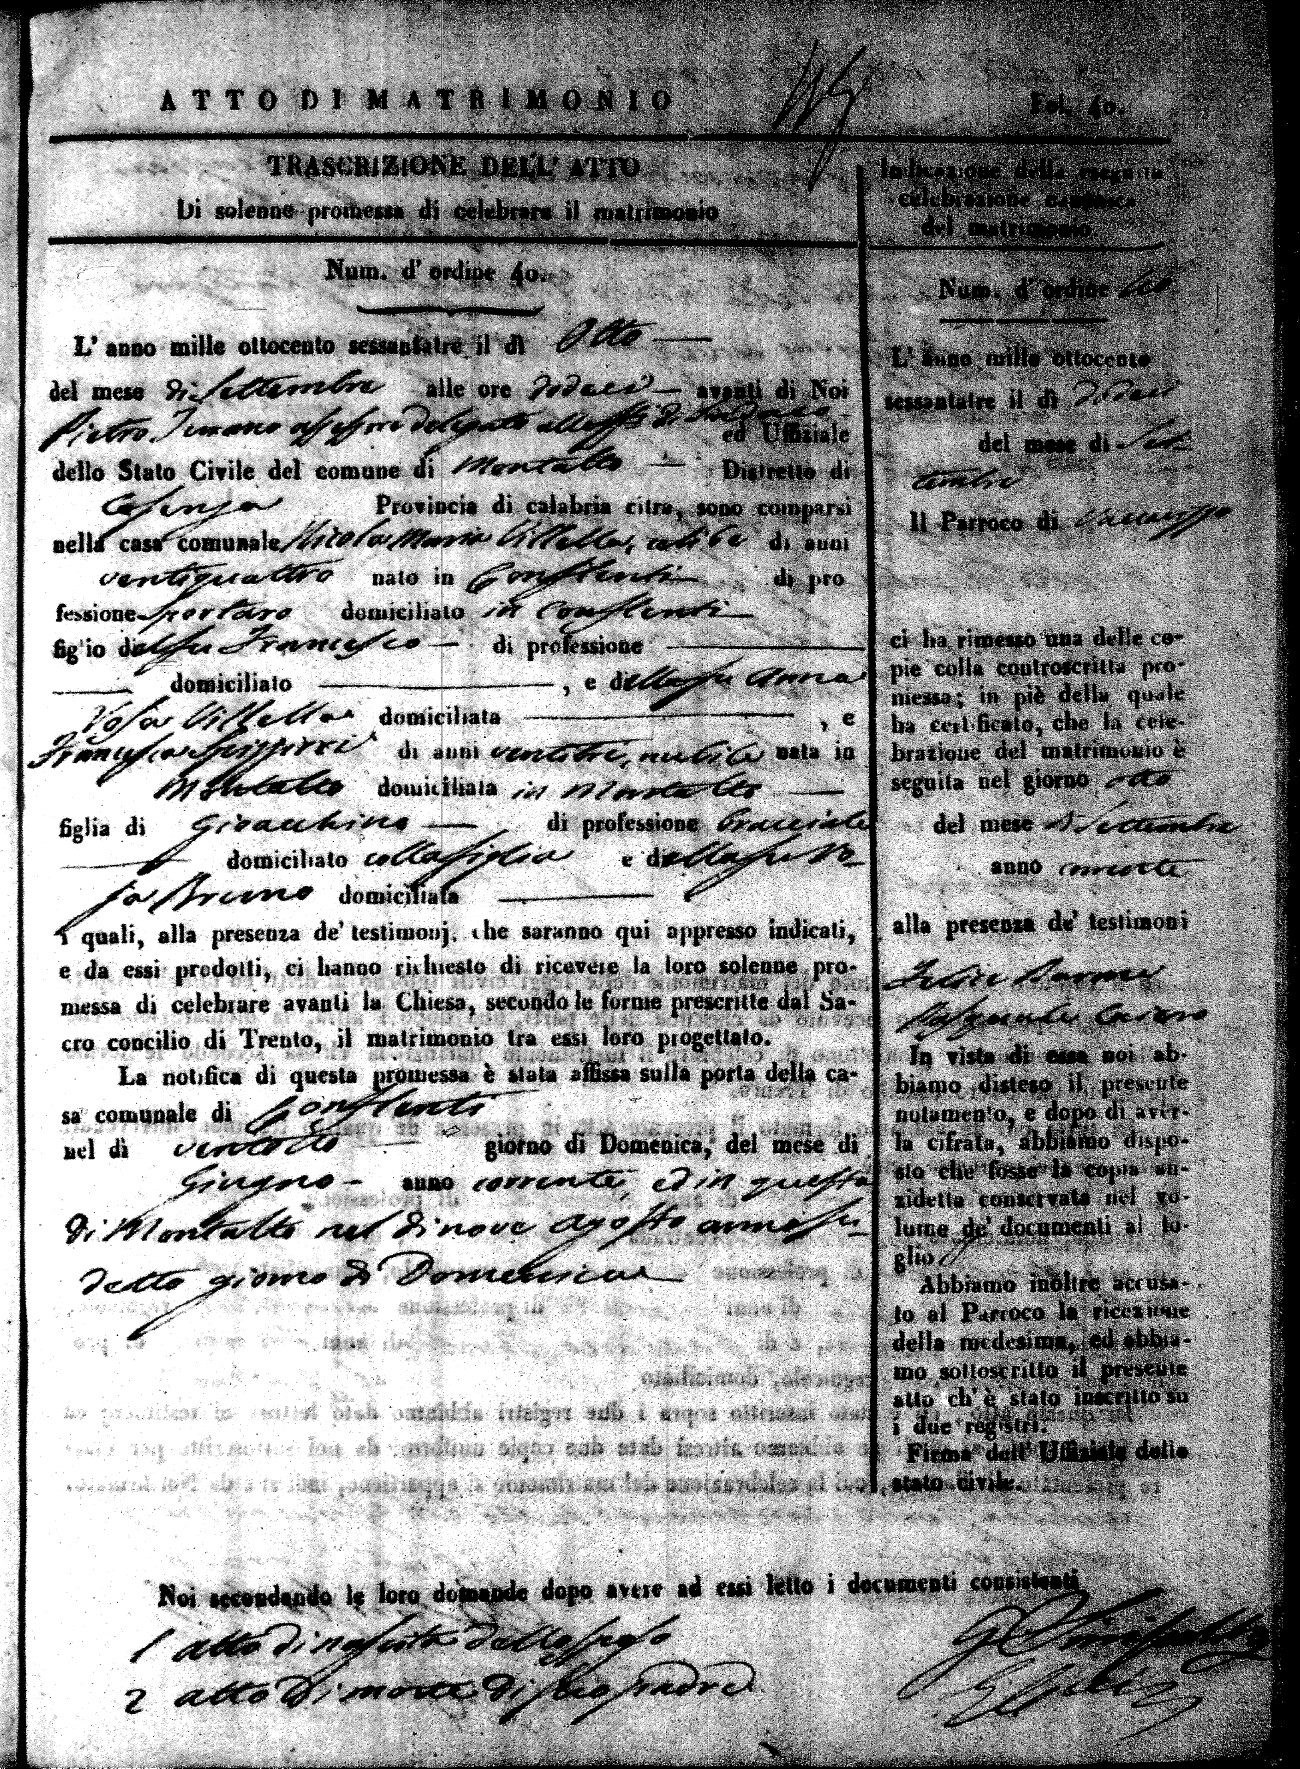 ATTO DI MATRIMONIO
Fol. 40.
TRASCRIZIONE DELL' ATTO
Di solenne promessa di celebrare il matrimonio
Num. d' ordine 40.
L' anno mille ottocento sessantatre il dì Otto
del mese di Settembre alle ore dodeci avanti di Noi
Pietro assessore delegato di Sindaco
ed Uffiziale
dello Stato Civile del comune di Montalto Distretto di
Cosenza Provincia di calabria citra, sono comparsi
nella casa comunale Nicola Maria Villella, celibe di anni
ventiquattro nato in Conflenti di pro
fessione sportaro domiciliato in Conflenti
figlio del fu Francesco di professione
domiciliato , e della fu Anna
Rosa Villella domiciliata , e
Francesca di anni ventitre, nubile nata in
Montalto domiciliata in Montalto
figlia di Gioacchino di professione bracciale
domiciliato colla figlia e della fu Ro
sa Bruno domiciliata
i quali, alla presenza de' testimonj, che saranno qui appresso indicati,
e da essi prodotti, ci hanno richiesto di ricevere la loro solenne pro-
messa di celebrare avanti la Chiesa, secondo le forme prescritte dal Sa-
cro concilio di Trento, il matrimonio tra essi loro progettato.
La notifica di questa promessa è stata affissa sulla porta della ca-
sa comunale di Conflenti
nel dì ventotto giorno di Domenica, del mese di
Giugno anno corrente, ed in questa
di Montalto nel dì nove Agosto anno su
detto giorno di Domenica
Noi secondando le loro domande dopo avere ad essi letto i documenti consistenti
1 atto di nascita dello sposo
2 atto di morte di suo padre
Indicazione della seguita
celebrazione canonica
del matrimonio.
Num. d' ordine 40
L' anno mille ottocento
sessantatre il dì dodeci
del mese di Set
tembre
Il Parroco di Vaccarizzo
ci ha rimesso una delle co-
pie colla controscritta pro-
messa; in piè della quale
ha certificato, che la cele-
brazione del matrimonio è
seguita nel giorno otto
del mese di Settembre
anno corrente
alla presenza de' testimoni
Pasquale
In vista di essa noi ab-
biamo disteso il presente
notamento, e dopo di aver-
la cifrata, abbiamo dispo-
sto che fosse la copia an-
zidetta conservata nel vo-
lume de' documenti al fo-
glio
Abbiamo inoltre accusa-
to al Parroco la ricezione
della medesima, ed abbia-
mo sottoscritto il presente
atto ch' è stato inscritto su
i due registri.
Firma dell' Uffiziale dello
stato civile.